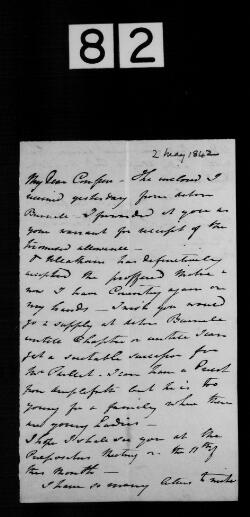 82
2 May 1842
My Dear Compton - The enclosed I
received yesterday from Acton
Burnell - I forwarded it you as
your warrant for receipt of the
allowance -
has definitively
accepted the proffered Mission &
now I have Coventry again on
my hands - I wish you would
go & supply at Acton Burnell
until Chapter or until I can
get a suitable successor for
Mr I can have a Priest
from Ampleforth but he is too
young for a family where there
are young Ladies -
I hope I shall see you at the
Preposites Meeting on the 11th of
this Month -
I have so many letters to write